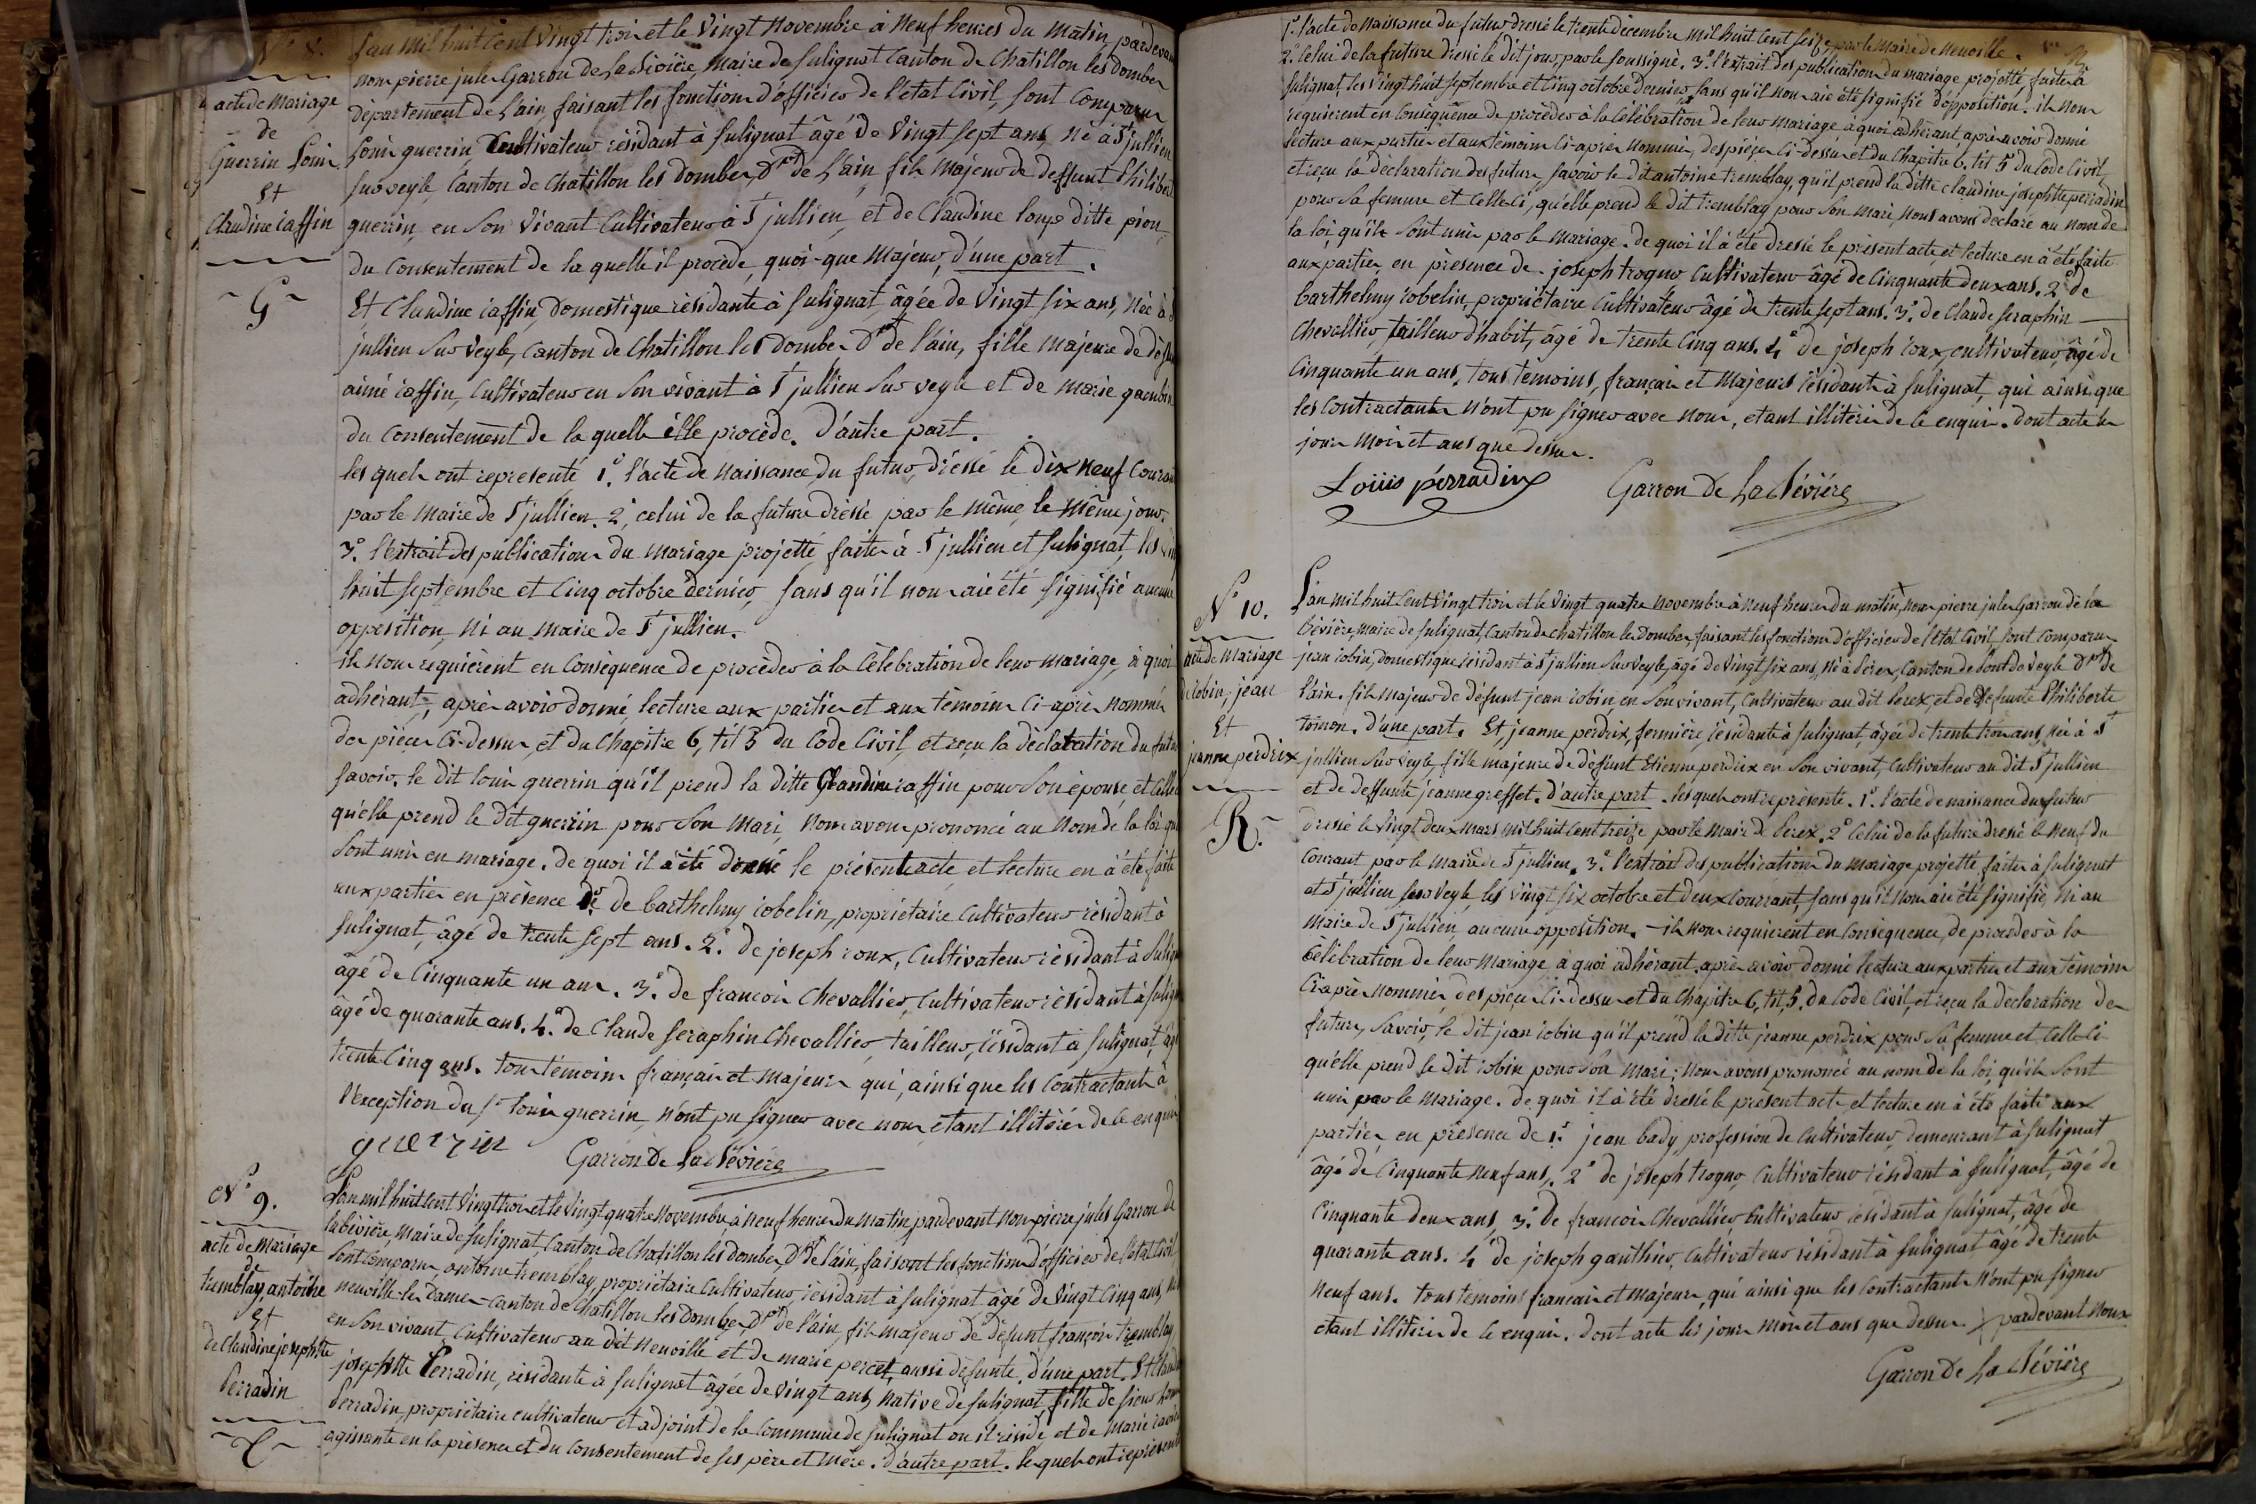 N° 8.
acte de Mariage
de
Guerrin Louis
Et
Claudine caffin
G
L'an mil huit Cent Vingt trois et le Vingt Novembre à Neuf heures du Matin, pardevant
nous pierre jules Garron de la Bévière, Maire de Sulignat Canton de Chatillon les dombes
département de l'ain, faisant les fonctions d'officier de l'état Civil, sont Comparus
Louis guerrin, Cultivateur résidant à Sulignat âgé de Vingt Sept ans, né à St jullien
sur veyle, Canton de Chatillon les dombes, Dpt de l'ain, fils Majeur de deffunt Philibert
guerrin, en Son Vivant Cultivateur à St jullien, et de Claudine loup ditte pion,
du Consentement de la quelle il procède, quoi-que Majeur, d'une part.
Et Claudine caffin, Domestique résidante à Sulignat, âgée de Vingt Six ans, Née à St
jullien Sur Veyle, Canton de Chatillon les Dombes Dpt de l'ain, fille Majeure de deffunt
aimé caffin, Cultivateur en Son vivant à St jullien Sur veyle et de Marie
du Consentement de la quelle élle procède. d'autre part.
les quels ont representé 1°. l'acte de Naissance du futur, dréssé le dix Neuf Courant
par le Maire de St jullien. 2°, celui de la future dréssé par le même, le Même jour.
3°. l'extrait des publications du Mariage projetté, faites à St jullien et Sulignat, les Vingt
huit Septembre et Cinq octobre Dernier, Sans qu'il nous aie été Signifié aucune
opposition, Ni au Maire de St jullien.
ils Nous requièrent en Conséquence de procèder à la Célébration de leur Mariage, à quoi
adhérant, après avoir donné lecture aux parties et aux témoins Ci-après Nommés
des pièces Ci-dessus, et du Chapitre 6, tit 5 du Code Civil, et reçu la déclaration du futur
Savoir, le dit Louis guerrin qu'il prend la ditte Claudine caffin pour Son épouse, et Celle
qu'elle prend le Dit guerrin pour Son Mari, Nous avons prononcé au Nom de la loi qu'
Sont unis en mariage. de quoi il à été donné le présent acte, et lecture en à été faite
aux parties en présence 1°. de barthelmy cobelin, propriétaire Cultivateur résidant à
Sulignat, âgé de trente Sept ans. 2°. de joseph roux, Cultivateur résidant à Sulignat
âgé de Cinquante un ans. 3°. de francois Chevallier, Cultivateur résidant à Sulignat
âgé de quarante ans. 4°. de Claude Seraphin Chevallier, tailleur, résidant à Sulignat, âgé
trente Cinq ans. tous témoins français et Majeurs qui, ainsi que les Contractants à
l'exception du Sr Louis guerrin, N'ont pu Signer avec nous, étant illitérés de ce enquis
guerrin Garron De La Bévière
N° 9.
acte de Mariage
de
tremblay, antoine
Et
de Claudine josephtte
Perradin
L'an mil huit cent Vingt trois et le Vingt quatre Novembre à Neuf heures du Matin, pardevant Nous pierre jules Garron de
la bévière, Maire de Sulignat, Canton de Chatillon les dombes Dpt de l'ain, faisant les fonctions d'officier de l'état Civil
Sont Comparus, antoine tremblay, propriétaire Cultivateur résidant à Sulignat âgé de Vingt Cinq ans, né
neuville les Dames Canton de Chatillon les Dombes, Dpt de l'ain, fils majeur de défunt françois tremblay,
en Son vivant, Cultivateur au dit Neuville et de marie percet, aussi défunte. d'une part. Et Claudine
josephtte Perradin, résidante à Sulignat âgée de Vingt ans, native de Sulignat, fille de Sieur Louis
Perradin, propriétaire cultivateur et adjoint de la Commune de Sulignat ou il réside, et de Marie
agissante en la présence et du Consentement de ses père et Mère. d'autre part. les quels ont representé
1°. l'acte de Naissance du futur dressé le trente décembre Mil huit Cent Seize, par le Maire de Neuville.
2°. Celui de la future dressé le dit jour, par le Soussigné. 3°. l'extrait des publications du Mariage projetté, faites à
Sulignat, les Vingt huit Septembre et Cinq octobre Dernier, Sans qu'il Nous aie été signifié d'opposition. ils Nous
requierent en Conséquence de procèder à la Célébration de leur Mariage, à quoi adhérant, après avoir donné
lecture aux parties et aux témoins Ci-après Nommés, des pièces Ci-dessus et du Chapitre 6, tit 5 du Code Civil,
et reçu la déclaration des futurs, Savoir le Dit antoine tremblay, qu'il prend la ditte Claudine josephtte perradin
pour Sa femme et Celle Ci, qu'elle prend le dit tremblay pour Son Mari, Nous avons déclaré au Nom de
la loi, qu'ils Sont unis par le Mariage. de quoi il à été dressé le présent acte, et lecture en à été faite
aux parties, en présence de joseph trogno Cultivateur âgé de Cinquante deux ans. 2° de
barthelmy cobelin, propriétaire Cultivateur âgé de trente sept ans. 3°. de Claude Seraphin
Chevallier, tailleur d'habit, âgé de trente Cinq ans. 4° de joseph roux, cultivateur, âgé de
Cinquante un ans, tous témoins, français et Majeurs résidants à Sulignat, qui ainsi que
les Contractants N'ont pu Signer avec Nous, étant illiterés de ce enquis. Dont acte les
jours Mois et ans que dessus.
Louis pérradin Garron De La Bévière
N° 10.
acte de Mariage
de Cobin, jean
Et
jeanne perdrix
R.
L'an mil huit Cent Vingt trois et le Vingt quatre Novembre à Neuf heures du matin, Nous pierre jules Garron de la
bévière, Maire de Sulignat, Canton de Chatillon les Dombes faisant les fonctions d'officier de l'état Civil, sont Comparus
jean cobin, domestique résidant à St jullien Sur Veyle, âgé de Vingt Six ans, né à Perex, Canton de Pont de Veyle Dpt de
l'ain. fils Majeur de défunt jean cobin, en Son vivant, Cultivateur au dit Perex, et de defunte Philiberte
Toinon. d'une part. Et, jeanne perdrix, fermière, résidante à Sulignat, âgée de trente trois ans, née à St
jullien Sur Veyle, fille majeure de défunt Etienne perdrix en Son vivant, Cultivateur au dit St jullien
et de deffunte jeanne greffet. d'autre part. les quels ont représenté. 1°. l'acte de naissance du futur
dressé le Vingt deux Mars mil huit Cent treize par le Maire de Perex. 2° Celui de la future dressé le Neuf du
Courant par le Maire de St jullien. 3°. l'extrait des publications du Mariage projetté, faites à Sulignat
et St jullien Sur Veyle, les Vingt Six octobre et deux Courrant, Sans qu'il Nous aie été Signifié, Ni au
Maire de St jullien aucune opposition. – ils nous requierent en Conséquence, de procéder à la
Célébration de leur Mariage, à quoi adhérant, après avoir donné lecture aux parties et aux témoins
Ci-après Nommés, des pièces Ci-dessus et du Chapitre 6, tit, 5. du Code Civil, et reçu la déclaration des
futurs, Savoir, le dit jean cobin qu'il prend la ditte jeanne perdrix pour Sa femme et Celle Ci
qu'elle prend le dit cobin pour Son Mari; Nous avons prononcé au nom de la loi, qu'ils Sont
unis par le Mariage. de quoi il à été dressé le présent acte, et lecture en à été faite aux
parties, en présence de 1°. jean bady profession de Cultivateur, demeurant à Sulignat
âgé de Cinquante Neuf ans. 2° de joseph trogno, Cultivateur résidant à Sulignat, âgé de
Cinquante deux ans, 3° de francois Chevallier Cultivateur résidant à Sulignat, âgé de
quarante ans. 4° de joseph gauthier, Cultivateur résidant à Sulignat âgé de trente
Neuf ans. tous témoins français et Majeurs, qui ainsi que les Contractants N'ont pu Signer
étant illitérés de ce enquis. dont acte les jours mois et ans que dessus. X pardevant Nous
Garron De La Bévière